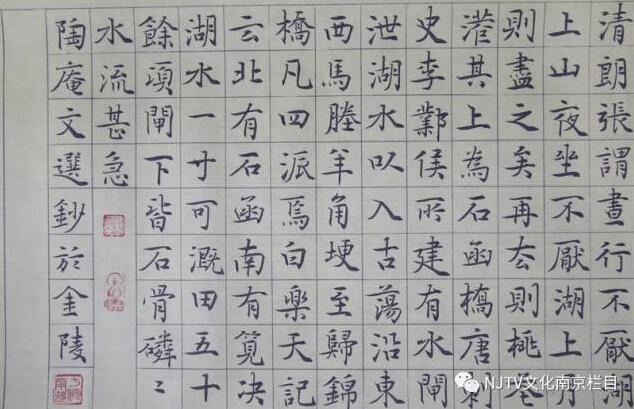 清朗張謂晝行不厭湖
上山夜坐不厭湖上月
則盡之矣再去則桃
港其上為石函橋唐刺
史李鄴侯所建有水閘
泄湖水以入古蕩沿東
西馬塍羊角埂至歸錦
橋凡四派焉白樂天記
云北有石函南有筧决
湖水一寸可溉田五十
餘頃閘下皆石骨磷〻
水流甚急
陶庵文選鈔於金陵
NJTV文化南京栏目